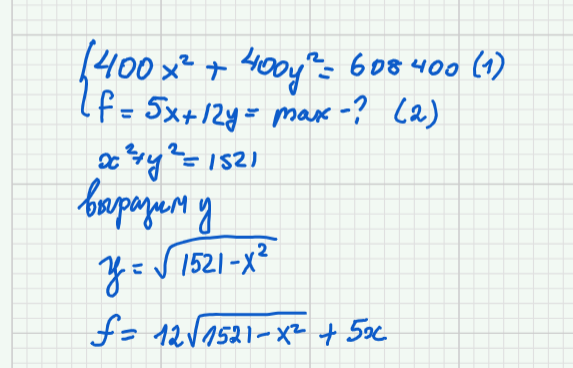 400x² + 400y² = 608400 (1)
f = 5x + 12y = max - ? (2)
x² + y² = 1521
выразим y
y = √(1521 - x²)
f = 12√(1521 - x²) + 5x